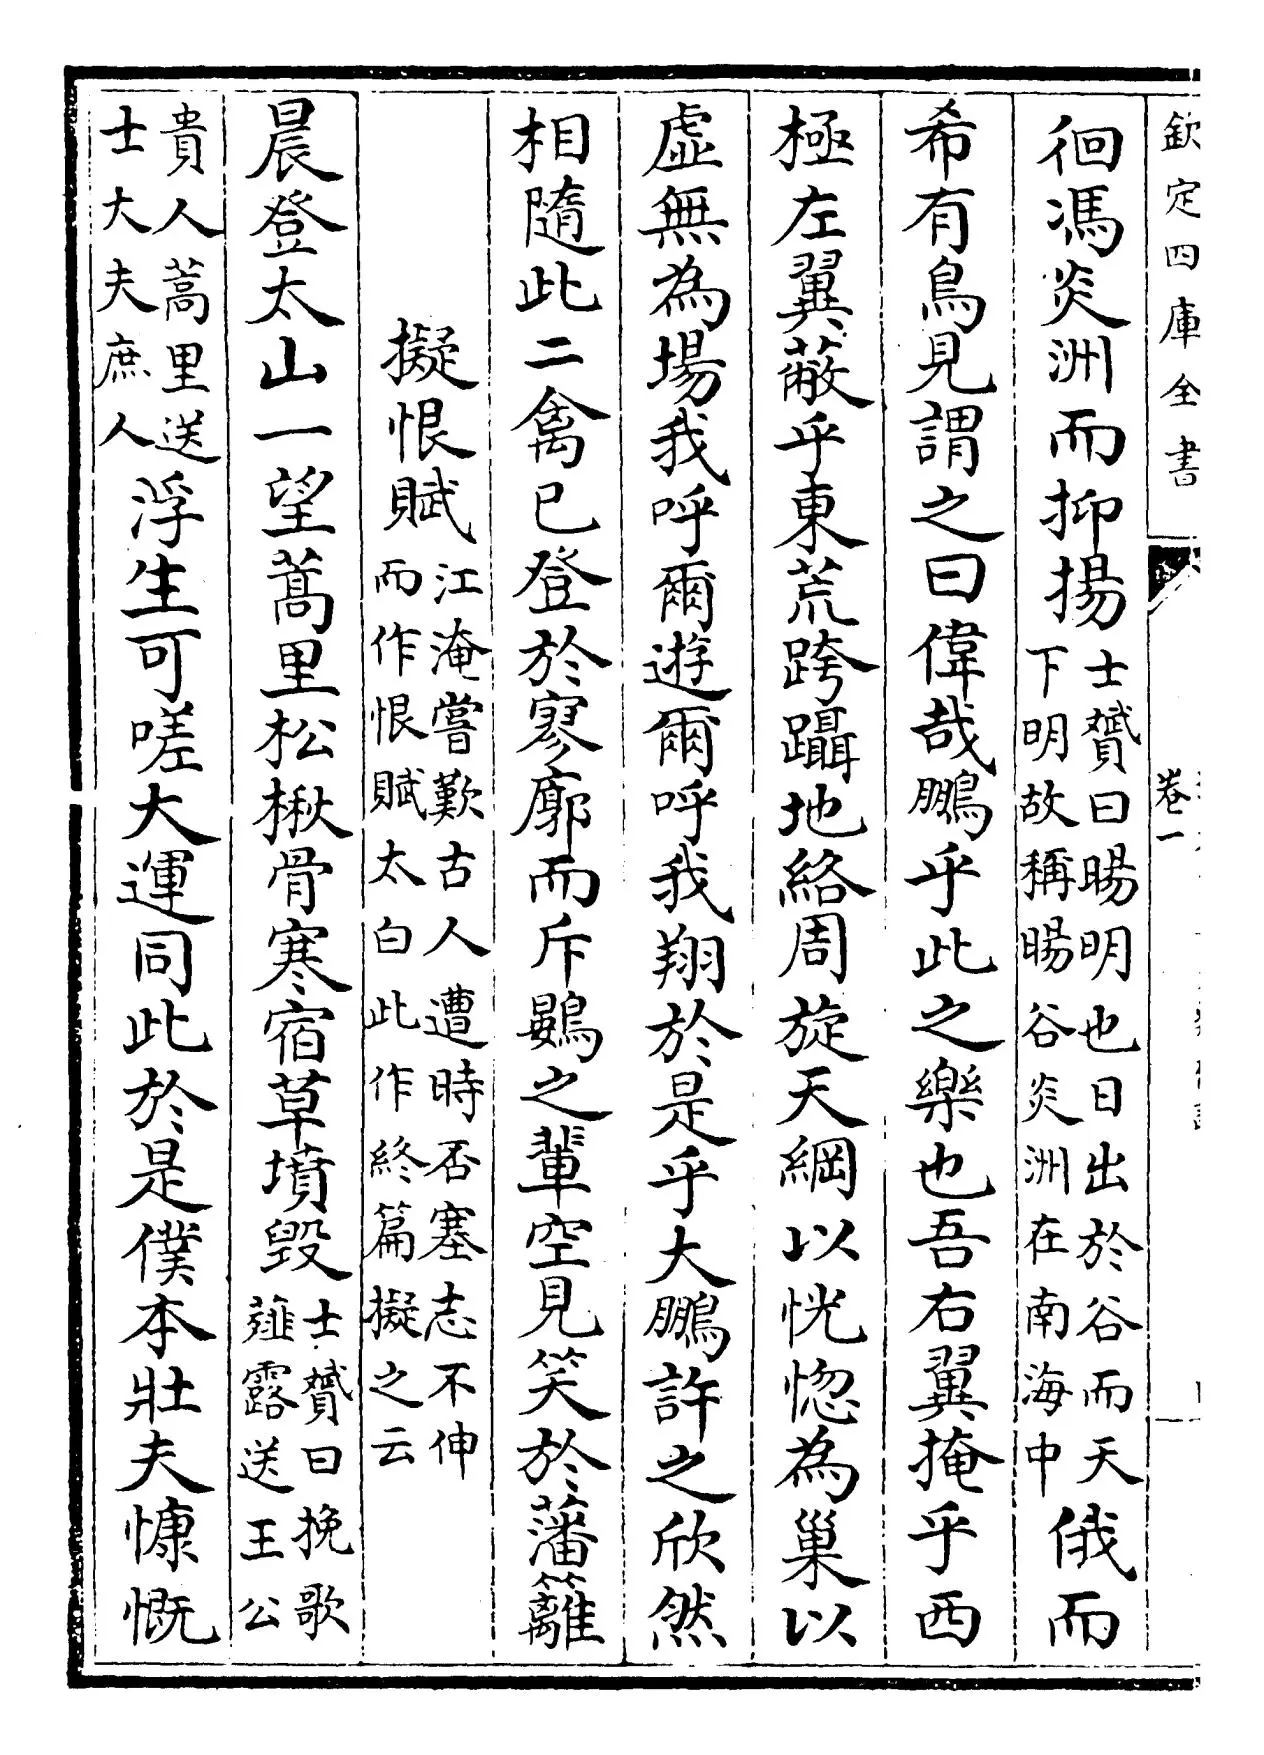 欽定四庫全書
卷一
徊馮炎洲而抑揚士贇曰暘明也日出於谷而天下明故稱暘谷炎洲在南海中俄而
希有鳥見謂之曰偉哉鵬乎此之樂也吾右翼掩乎西
極左翼蔽乎東荒跨躡地絡周旋天綱以恍惚為巢以
虛無為場我呼爾遊爾呼我翔於是乎大鵬許之欣然
相隨此二禽已登於寥廓而斥鷃之輩空見笑於藩籬
擬恨賦江淹嘗歎古人遭時否塞志不伸而作恨賦太白此作終篇擬之云
晨登太山一望蒿里松楸骨寒宿草墳毀士贇曰挽歌薤露送王公
貴人蒿里送士大夫庶人浮生可嗟大運同此於是僕本壯夫慷慨